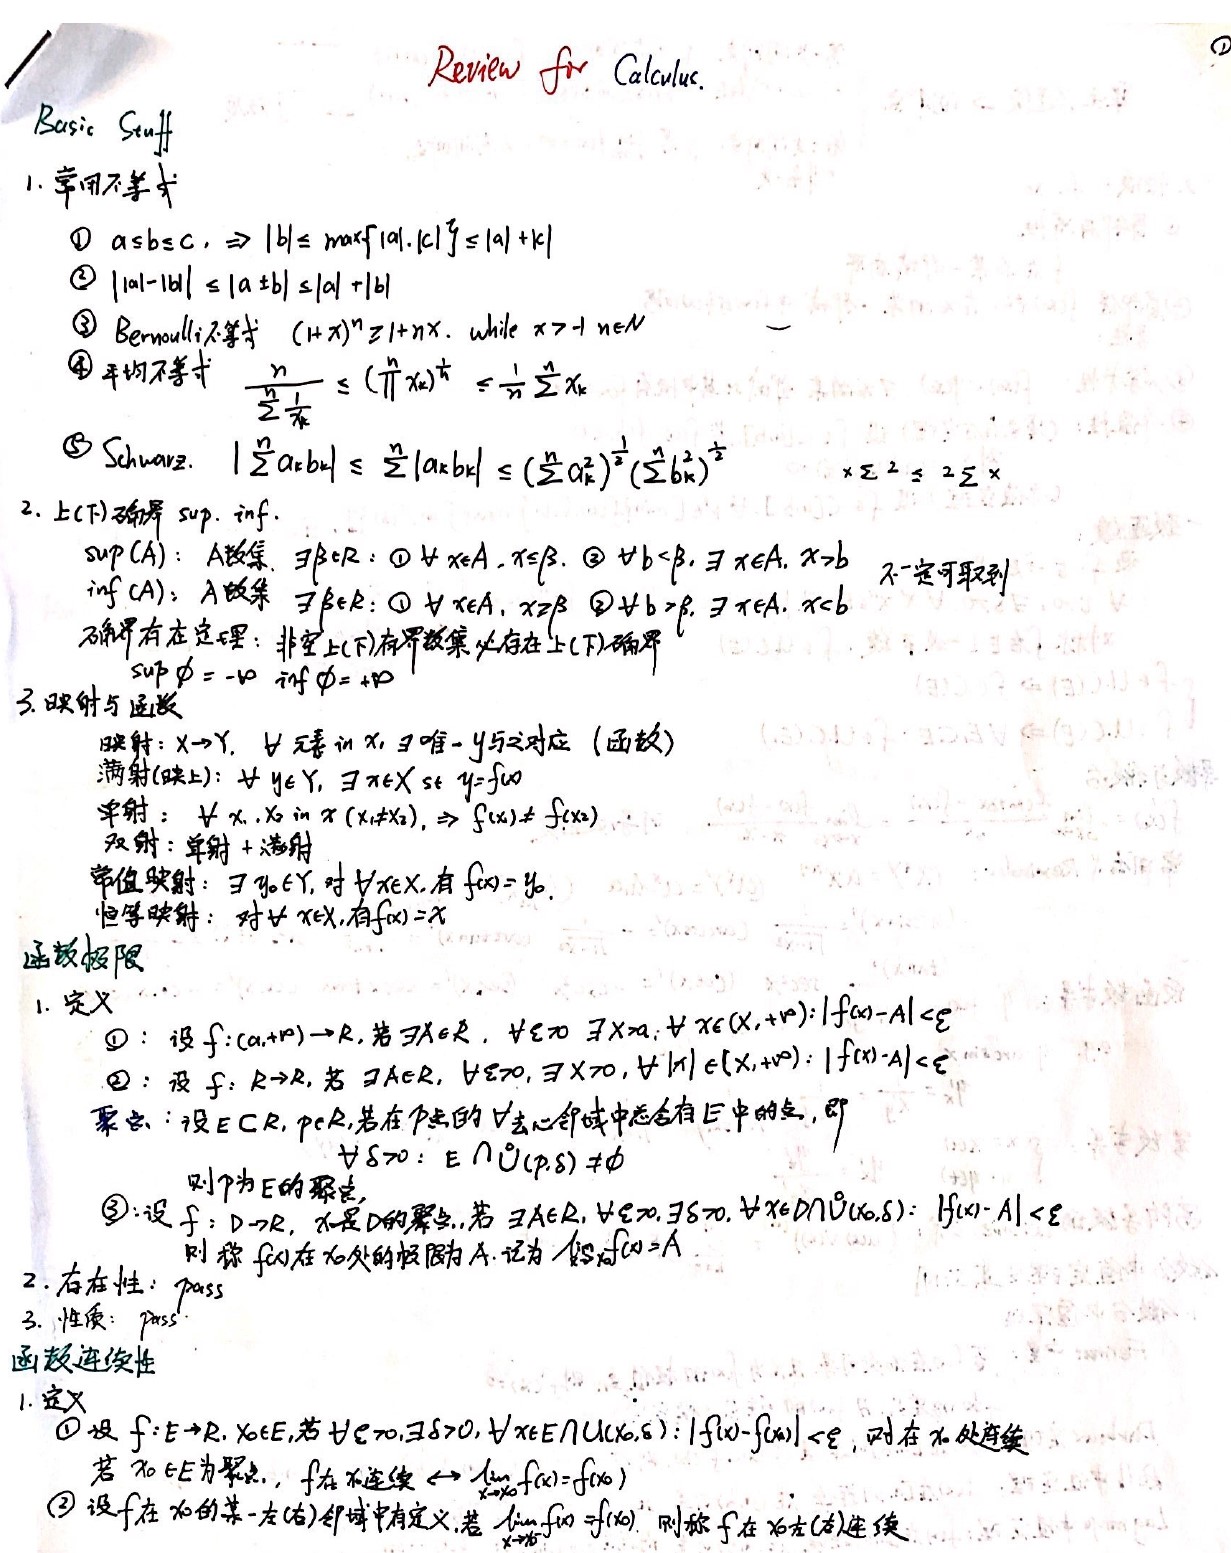 ①
Review for Calculus.
Basic Stuff
1. 常用不等式
① a≤b≤c, ⇒ |b|≤ max{|a|.|c|}≤|a|+|c|
② ||a|-|b|| ≤|a±b|≤|a|+|b|
③ Bernoulli不等式 (1+x)ⁿ≥1+nx. while x>-1 n∈N
④ 平均不等式 n/(∑ⁿ 1/xₖ) ≤ (∏ⁿ xₖ)^(1/n) ≤ 1/n ∑ⁿ xₖ
⑤ Schwarz. |∑ⁿ aₖbₖ| ≤ ∑ⁿ |aₖbₖ| ≤ (∑ⁿ aₖ²)^(1/2) (∑ⁿ bₖ²)^(1/2) ×∑2 ≤ 2∑×
2. 上(下)确界 sup. inf.
sup(A): A数集. ∃β∈R: ① ∀x∈A, x≤β. ② ∀b<β, ∃x∈A, x>b 不一定可取到
inf(A): A数集 ∃β∈R: ① ∀x∈A, x≥β ②∀b>β, ∃x∈A. x<b
确界存在定理: 非空上(下)有界数集必存在上(下)确界
sup ∅ = -∞ inf ∅ = +∞
3. 映射与函数
映射: X→Y, ∀ 元素 in X, ∃唯一y与之对应 (函数)
满射(映上): ∀ y∈Y, ∃x∈X st y=f(x)
单射: ∀ x₁, x₂ in x (x₁≠x₂), ⇒ f(x₁)≠f(x₂)
双射: 单射+满射
常值映射: ∃y₀∈Y, 对∀x∈X, 有f(x)=y₀.
恒等映射: 对∀ x∈X, 有f(x)=x
函数极限
1. 定义
①: 设 f:(a,+∞)→R, 若∃A∈R, ∀ε>0 ∃X>a: ∀x∈(X,+∞): |f(x)-A|<ε
②: 设 f: R→R, 若 ∃A∈R, ∀ε>0, ∃X>0, ∀|x|∈(X,+∞): |f(x)-A|<ε
聚点: 设E⊂R, p∈R, 若在p点的∀去心邻域中总含有E中的点, 即
∀δ>0: E∩Ů(p,δ)≠∅
则p为E的聚点,
③: 设 f: D→R, x₀是D的聚点, 若 ∃A∈R, ∀ε>0, ∃δ>0, ∀x∈D∩Ů(x₀,δ): |f(x)-A|<ε
则称f(x)在x₀处的极限为A. 记为 lim x→x₀ f(x)=A
2. 存在性: pass
3. 性质: pass
函数连续性
1. 定义
① 设 f:E→R, x₀∈E, 若∀ε>0, ∃δ>0, ∀x∈E∩U(x₀,δ): |f(x)-f(x₀)|<ε, 则在x₀处连续
若 x₀∈E为聚点, f在x₀连续 ↔ lim x→x₀ f(x)=f(x₀)
② 设f在x₀的某一左(右)邻域中有定义, 若 lim x→x₀⁻ f(x)=f(x₀) 则称f在x₀左(右)连续